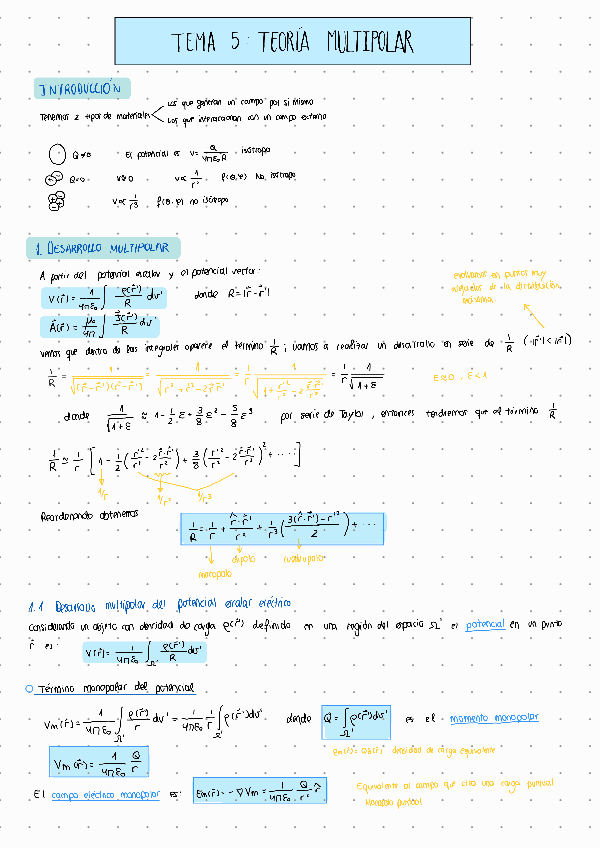 TEMA 5: TEORÍA MULTIPOLAR
INTRODUCCIÓN
Tenemos 2 tipos de materiales
Los que generan un campo por si mismo
Los que interaccionan con un campo externo
Q≠0 El potencial es V = Q/4πε₀R isótropo
Q=0 V≈0 V∝ 1/r² f(θ,φ) No isótropo
V∝ 1/r³ f(θ,φ) no isótropo
1. DESARROLLO MULTIPOLAR
A partir del potencial escalar y el potencial vector:
V(r⃗) = 1/4πε₀ ∫ ρ(r⃗')/R dv' donde R=|r⃗-r⃗'|
A⃗(r⃗) = μ₀/4π ∫ J⃗(r⃗')/R dv'
evaluamos en puntos muy
alejados de la distribución
vemos que dentro de las integrales aparece el término 1/R ; vamos a realizar un desarrollo en serie de 1/R (|r⃗'|<|r⃗|)
1/R = 1/√((r⃗-r⃗')(r⃗-r⃗')) = 1/√(r²+r'²-2r⃗·r⃗') = 1/r 1/√(1+ r'²/r² - 2 r⃗·r⃗'/r²) = 1/r 1/√(1+ε) ε≈0, ε<1
donde 1/√(1+ε) ≈ 1 - 1/2 ε + 3/8 ε² - 5/8 ε³ por serie de Taylor, entonces tendremos que el término 1/R
1/R ≈ 1/r [1 - 1/2 (r'²/r² - 2 r⃗·r⃗'/r²) + 3/8 (r'²/r² - 2 r⃗·r⃗'/r²)² + ····]
1/r 1/r² 1/r³
Reordenando obtenemos
1/R = 1/r + r̂·r⃗'/r² + 1/r³ (3(r̂·r⃗')-r'²/2) + ···
dipolo cuadrupolo
monopolo
1.1 Desarrollo multipolar del potencial escalar eléctrico
Considerando un objeto con densidad de carga ρ(r⃗') definido en una región del espacio Ω' el potencial en un punto
r⃗ es: V(r⃗) = 1/4πε₀ ∫Ω' ρ(r⃗')/R dv'
Término monopolar del potencial
Vm(r⃗) = 1/4πε₀ ∫Ω' ρ(r⃗')/r dv' = 1/4πε₀ 1/r ∫Ω' ρ(r⃗')dv' donde Q = ∫Ω' ρ(r⃗')dv' es el momento monopolar
densidad de carga equivalente
Vm(r⃗) = 1/4πε₀ Q/r
El campo eléctrico monopolar es: Em(r⃗) = -∇Vm = 1/4πε₀ Q/r² r̂
Equivalente al campo que crea una carga puntual
Monopolo puntual